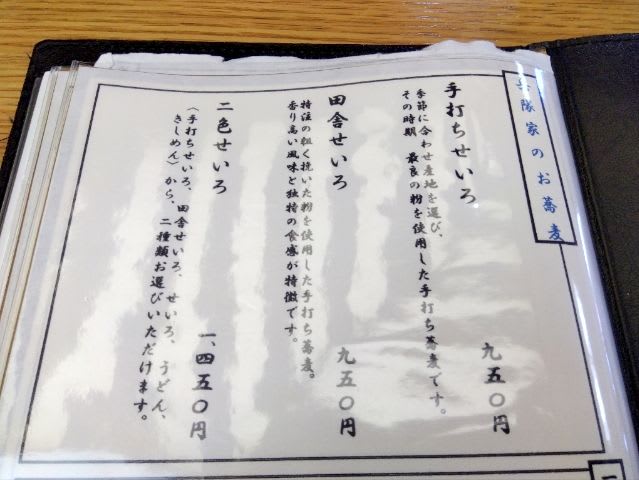 兵隊家のお蕎麦
手打ちせいろ 九五〇円
季節に合わせ産地を選び、
その時期、最良の粉を使用した手打ち蕎麦です。
田舎せいろ 九五〇円
特注の粗く挽いた粉を使用した手打ち蕎麦。
香り高い風味と独特の食感が特徴です。
二色せいろ 一、四五〇円
〈手打ちせいろ、田舎せいろ、せいろ、うどん、
きしめん〉から、二種類お選びいただけます。